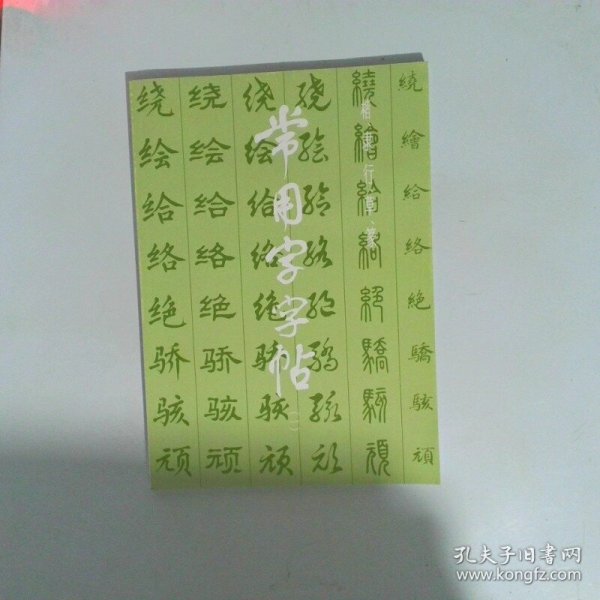 常用字字帖
(二)
楷隶行草篆
绕 绕 绕 绕 繞 繞
绘 绘 绘 绘 繪 繪
给 给 给 给 給 給
络 络 络 络 絡 络
绝 绝 绝 绝 絕 絶
骄 骄 骄 骄 驕 驕
骇 骇 骇 骇 駭 駭
顽 顽 顽 顽 頑 頑
孔夫子旧书网
www.kongfz.com